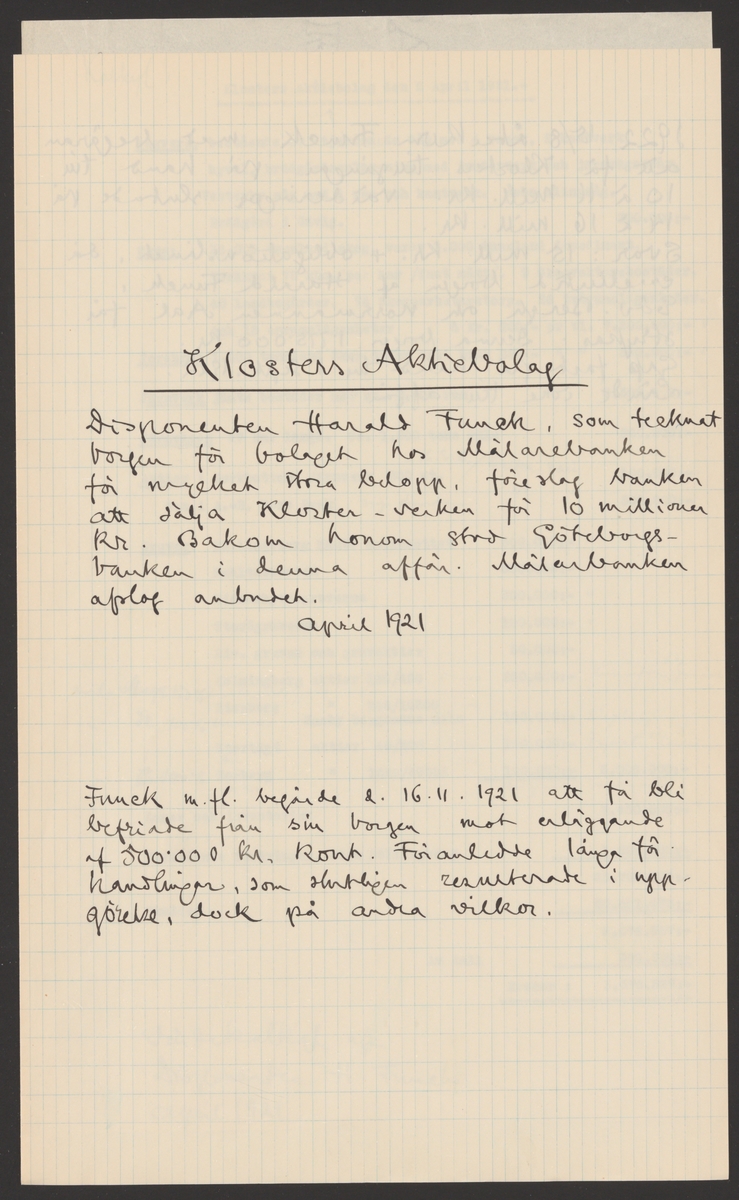 Klosters Aktiebolag
Disponenten Harald Funck, som tecknat
borgen för bolaget hos Mälarebanken
för mycket stora belopp, föreslog banken
att sälja Kloster-verken för 10 millioner
kr. Bakom honom stod Göteborgs-
banken i denna affär. Mälarbanken
afslog anbudet.
April 1921
Funck m.fl. begärde d. 16.11.1921 att få bli
befriade från sin borgen mot erläggande
af 500.000 kr. kont. Föranledde långa för-
handlingar, som slutligen resulterade i upp-
görelse, dock på andra vilkor.